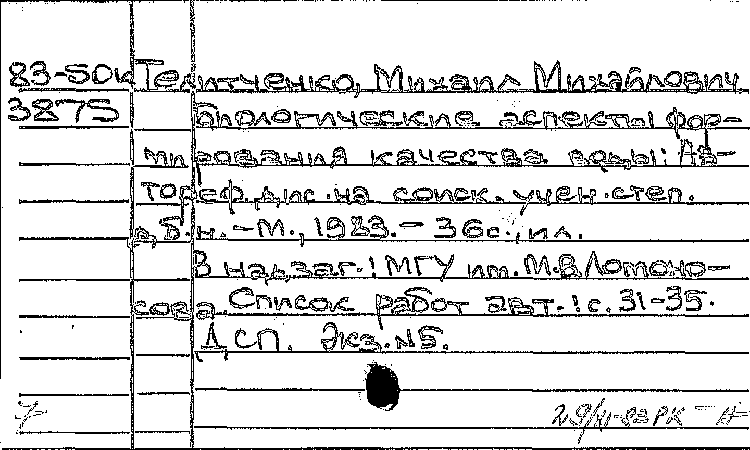 83-50к Телитченко, Михаил Михайлович
3875 Биологические аспекты фор-
мирования качества воды: Ав-
тореф. дис. на соиск. учен. степ.
д.б.н. - М., 1983. - 36с., ил.
В надзаг.: МГУ им. М.В.Ломоно-
сова. Список работ авт.: с. 31-35.
ДСП. Экз.№5.